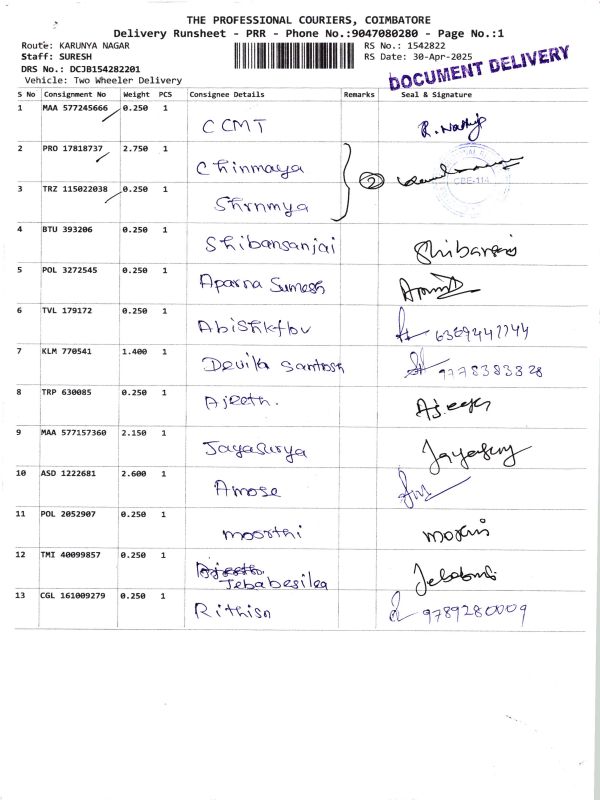 THE PROFESSIONAL COURIERS, COIMBATORE
Delivery Runsheet - PRR - Phone No.:9047080280 - Page No.:1
Route: KARUNYA NAGAR RS No.: 1542822
Staff: SURESH RS Date: 30-Apr-2025
DRS No.: DCJB154282201
Vehicle: Two Wheeler Delivery
DOCUMENT DELIVERY
S No Consignment No Weight PCS Consignee Details Remarks Seal & Signature
1 MAA 577245666 0.250 1 CCMT
2 PRO 17818737 2.750 1 Chinmaya 2 CBE-114
3 TRZ 115022038 0.250 1 Shrnmya
4 BTU 393206 0.250 1 Shibansanjai
5 POL 3272545 0.250 1 Aparna Sumesh
6 TVL 179172 0.250 1
7 KLM 770541 1.400 1 Devika Santosh 9778383328
8 TRP 630085 0.250 1 Ajeeth.
9 MAA 577157360 2.150 1 Jayasurya Jayasury
10 ASD 1222681 2.600 1 Amose
11 POL 2052907 0.250 1 moorthi
12 TMI 40099857 0.250 1 Jebabesilea
13 CGL 161009279 0.250 1 Rithisn 9789280009